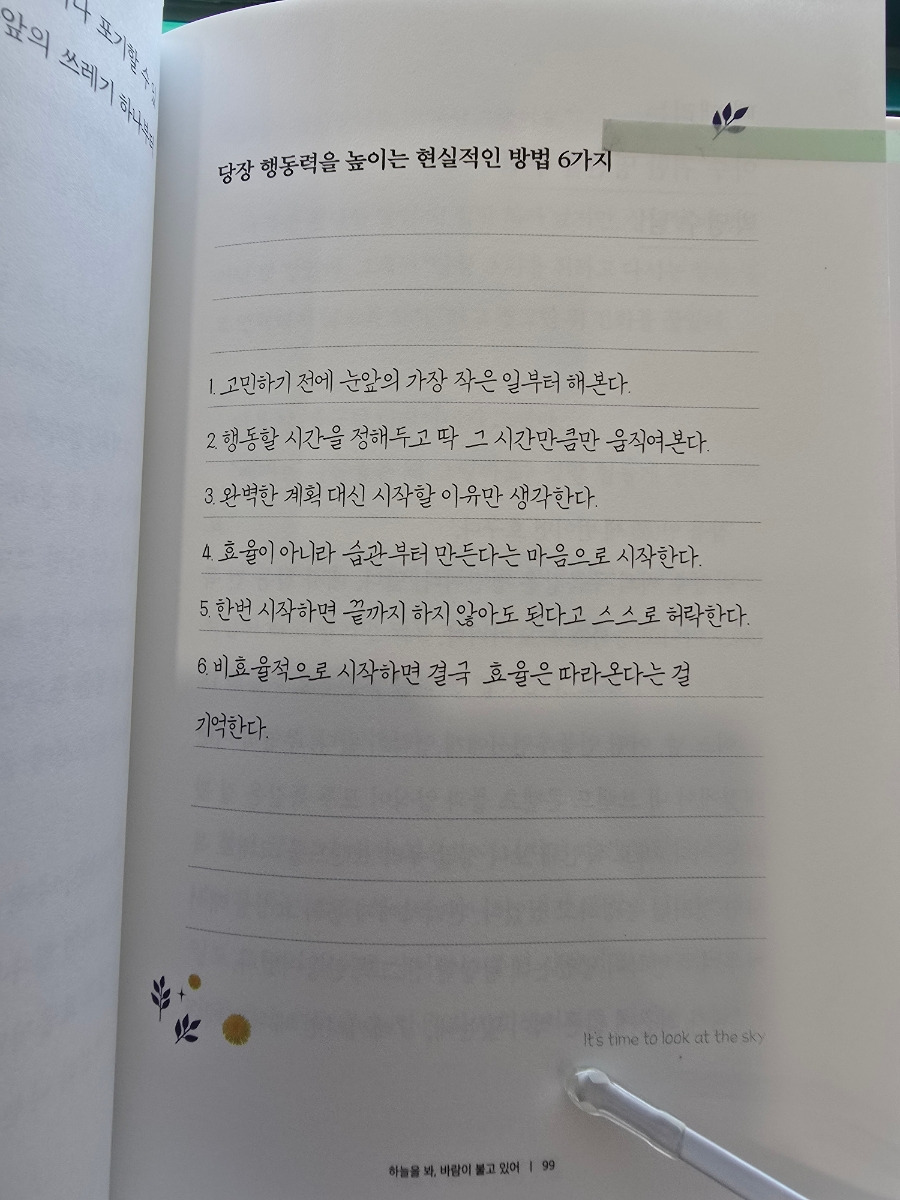 포기할 수
앞의 쓰레기 하나부터
당장 행동력을 높이는 현실적인 방법 6가지
1. 고민하기 전에 눈앞의 가장 작은 일부터 해본다.
2. 행동할 시간을 정해두고 딱 그 시간만큼만 움직여본다.
3. 완벽한 계획 대신 시작할 이유만 생각한다.
4. 효율이 아니라 습관부터 만든다는 마음으로 시작한다.
5. 한번 시작하면 끝까지 하지 않아도 된다고 스스로 허락한다.
6. 비효율적으로 시작하면 결국 효율은 따라온다는 걸
기억한다.
It's time to look at the sky
하늘을 봐, 바람이 불고 있어 | 99